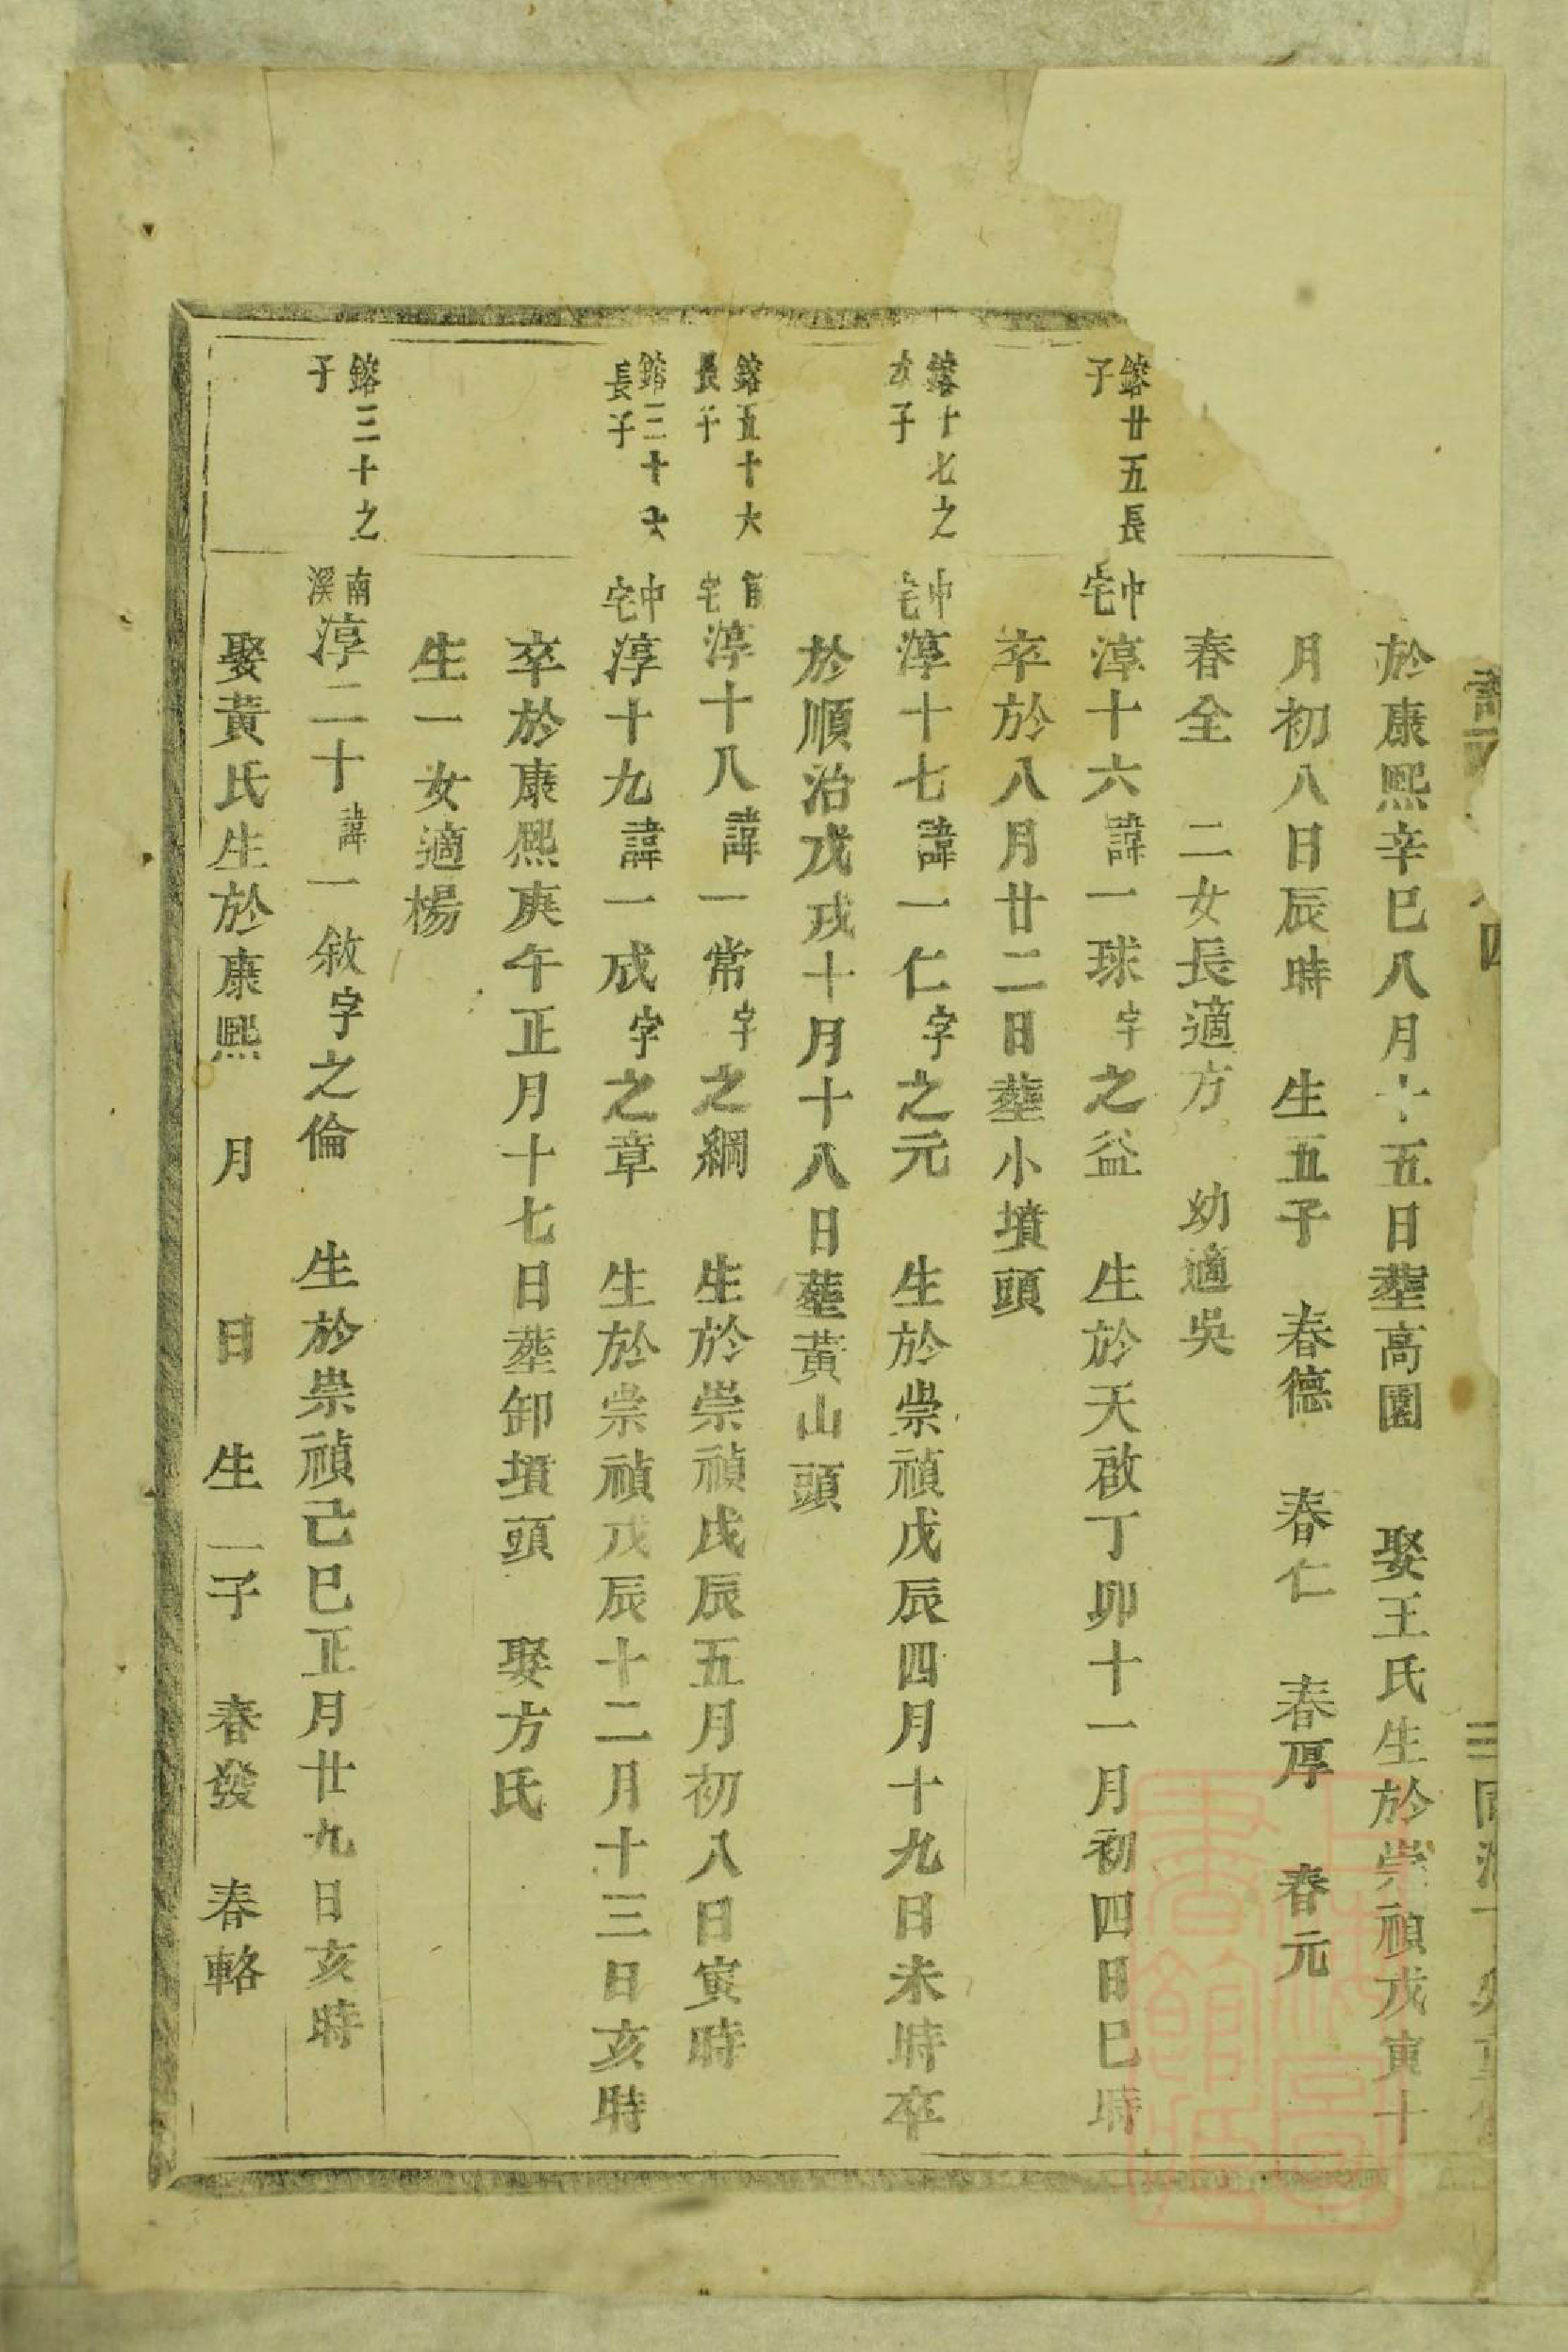 四
於康熙辛巳八月十五日塟高園 娶王氏生於崇禎戊寅十
月初八日辰時 生五子 春德 春仁 春厚 春元
春全 二女長適方 幼適吳
鎔廿五長
子
中
宅
淳十六諱一球字之益 生於天啟丁卯十一月初四日巳時
卒於八月廿二日塟小墳頭
鎔十七之
次子
中
宅
淳十七諱一仁字之元 生於崇禎戊辰四月十九日未時卒
於順治戊戌十月十八日塟黃山頭
鎔五十六
長子
宅
淳十八諱一常字之綱 生於崇禎戊辰五月初八日寅時
鎔三十六
長子
中
宅
淳十九諱一成字之章 生於崇禎戊辰十二月十三日亥時
卒於康熙庚午正月十七日塟卸墳頭 娶方氏
生一女適楊
鎔三十之
子
南
溪
淳二十諱一敘字之倫 生於崇禎己巳正月廿九日亥時
娶黃氏生於康熙 月 日 生二子 春發 春輅